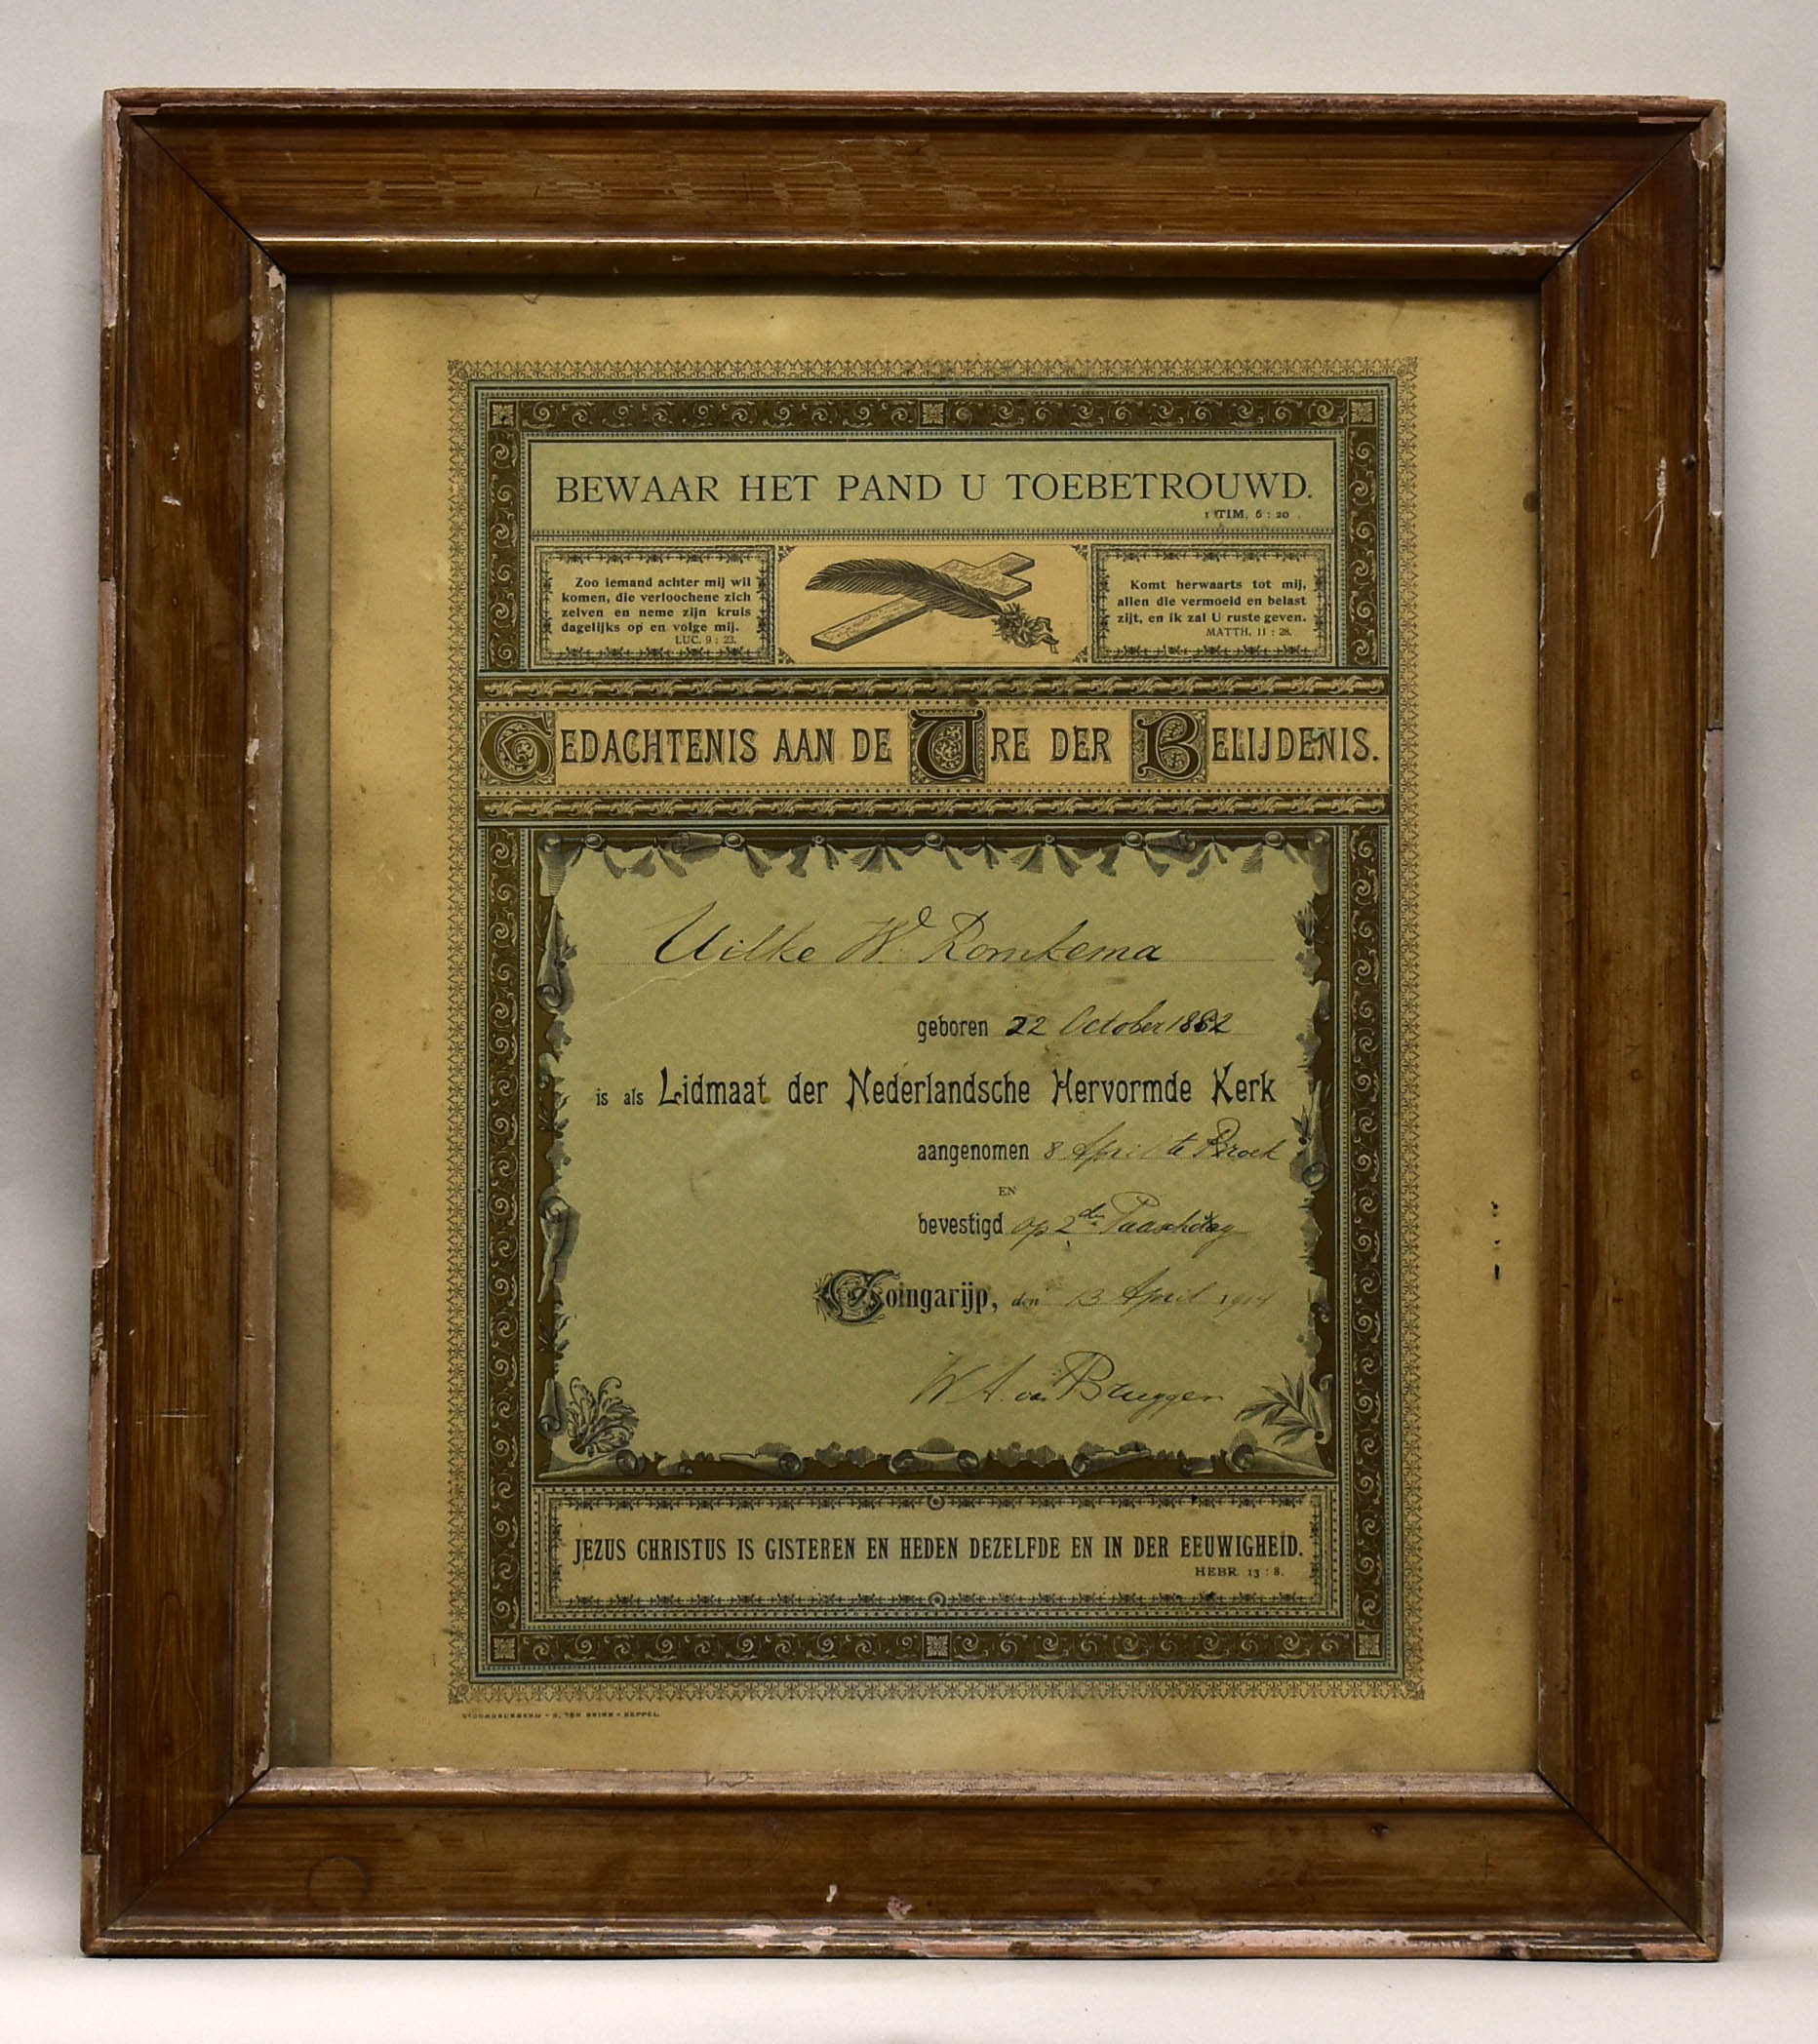 BEWAAR HET PAND U TOEBETROUWD.
1 TIM. 6 : 20
Zoo iemand achter mij wil
komen, die verloochene zich
zelven en neme zijn kruis
dagelijks op en volge mij.
LUC. 9 : 23.
Komt herwaarts tot mij,
allen die vermoeid en belast
zijt, en ik zal U ruste geven.
MATTH. 11 : 28.
GEDACHTENIS AAN DE URE DER BELIJDENIS.
Uilke W. Romkema
geboren 22 October 1882
is als Lidmaat der Nederlandsche Hervormde Kerk
aangenomen 8 April te Broek
EN
bevestigd op 2den Paaschdag
Goingarijp, den 13 April 1914
W A. van Bruggen
JEZUS CHRISTUS IS GISTEREN EN HEDEN DEZELFDE EN IN DER EEUWIGHEID.
HEBR. 13 : 8.
STOOMDRUKKERIJ - R. TEN BRINK - MEPPEL